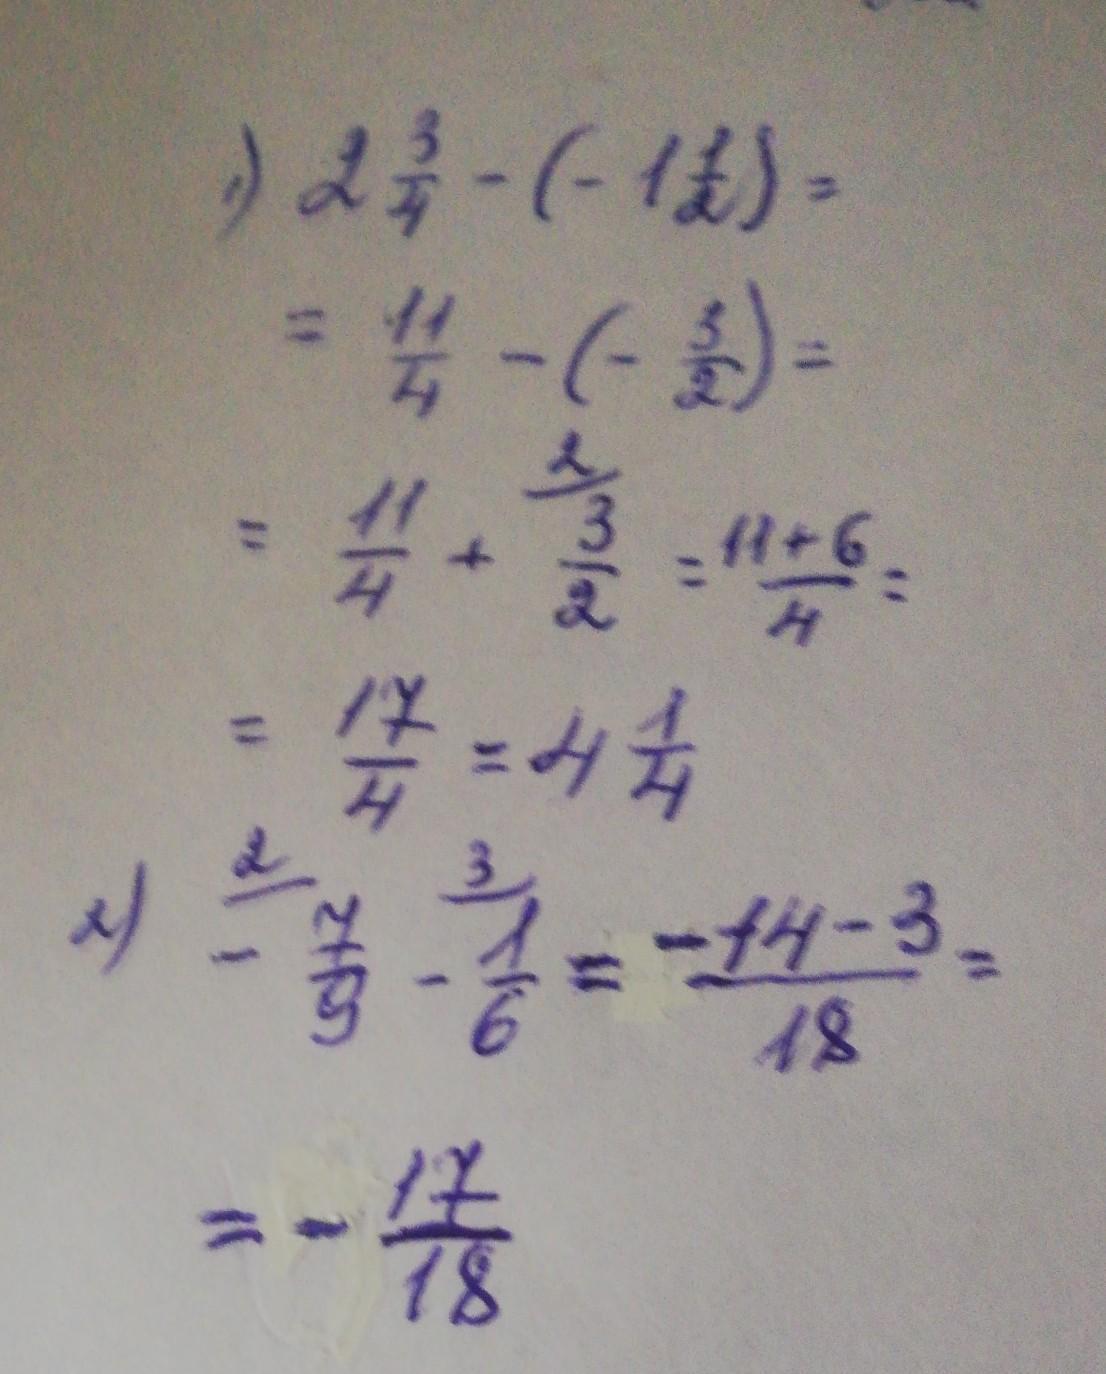 1) 2 3/4 - (- 1 1/2) =
= 11/4 - (- 3/2) =
= 11/4 + 2/ 3/2 = 11+6/4 =
= 17/4 = 4 1/4
2) 2/ - 7/9 - 3/ 1/6 = -14-3/18 =
= - 17/18